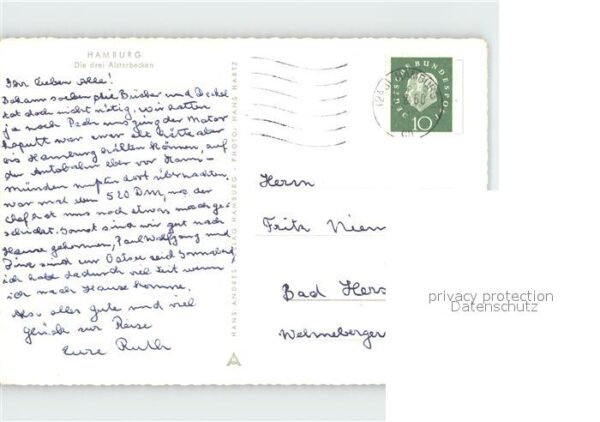 HAMBURG
Die drei Alsterbecken
Ihr lieben Alle!
Bekam soeben die Bücher und
tat doch nicht nötig. Wir hatten
ja noch Pech uns ging der Motor
kaputt war zwar alt hätte aber
bis Hamburg halten können, auf
der Autobahn aber vor Hann.-
münden mußten dort übernachten
war mal eben 520 DM, na der
Chef hat uns noch etwas nachge-
schickt. Sonst sind wir gut nach
Hause gekommen, Paul Wolfgang und
sind zur Ostsee seid Sonnabend
ich habe dadurch viel Zeit wenn
ich nach Hause komme.
Also alles gute und viel
Glück zur Reise
Eure Ruth
HANS ANDRES VERLAG HAMBURG - PHOTO: HANS HARTZ
DEUTSCHE BUNDESPOST
10
Herrn
Fritz Niem
Bad Hers
Wehneberger
privacy protection
Datenschutz